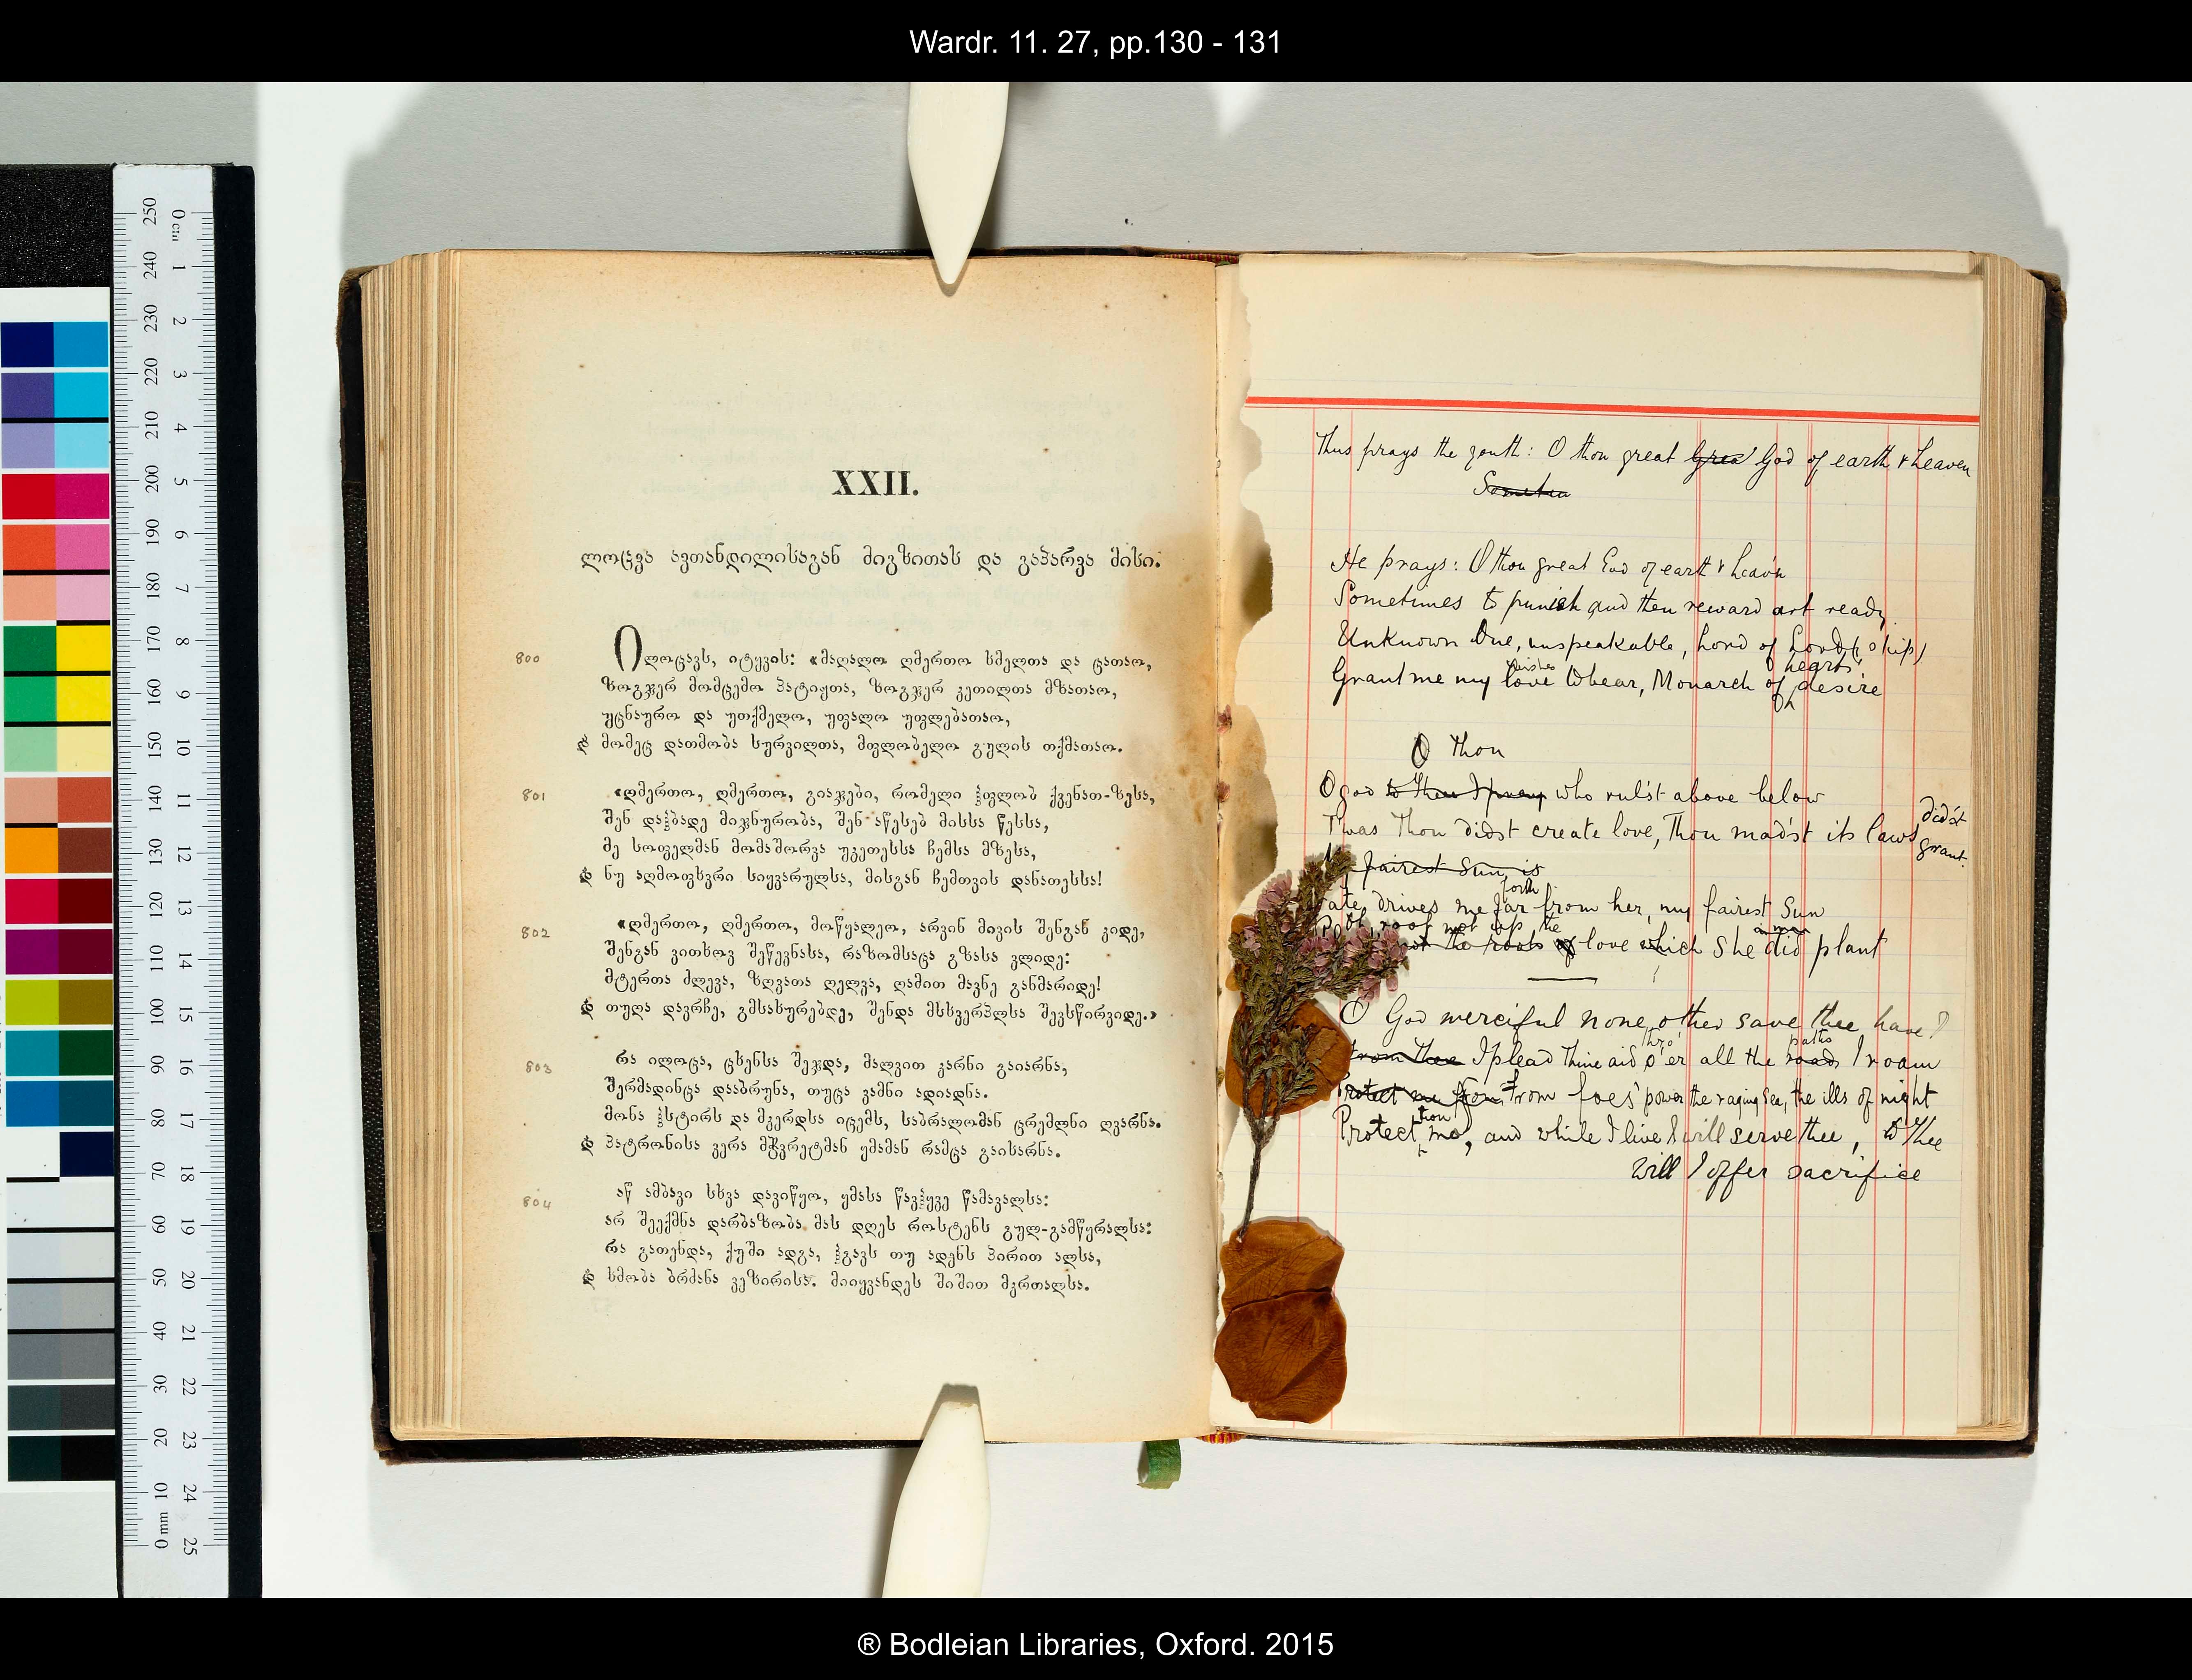 Wardr. 11. 27, pp.130 - 131
XXII.
ლოცვა ავთანდილისაგან მიგზითას და გაპარვა მისი.
800 ილოცავს, იტყვის: «მაღალო ღმერთო ხმელთა და ცათაო,
ზოგჯერ მომცემო პატიჟთა, ზოგჯერ კეთილთა მზათაო,
უცნაურო და უთქმელო, უფალო უფლებათაო,
ჭ მომეც დათმობა სურვილთა, მფლობელო გულის თქმათაო.
801 «ღმერთო, ღმერთო, გიაჯები, რომელი ჰფლობ ქვენათ-ზესა,
შენ დაჰბადე მიჯნურობა, შენ აწესებ მისსა წესსა,
მე სოფელმან მომაშორვა უკეთესსა ჩემსა მზესა,
ჭ ნუ აღმოფხვრი სიყვარულსა, მისგან ჩემთვის დანათესსა!
802 «ღმერთო, ღმერთო, მოწყალეო, არვინ მივის შენგან კიდე,
შენგან ვითხოვ შეწევნასა, რაზომსაცა გზასა ვლიდე:
მტერთა ძლევა, ზღვათა ღელვა, ღამით მავნე განმარიდე!
ჭ თუღა დავრჩე, გმსახურებდე, შენდა მსხვერპლსა შევსწირვიდე.»
803 რა ილოცა, ცხენსა შეჯდა, მალვით კარნი გაიარნა,
შერმადინცა დააბრუნა, თუცა ვამნი ადიადნა.
მონა ჰსტირს და მკერდსა იცემს, საბრალომან ცრემლნი ღვარნა.
ჭ პატრონისა ვერა მჭვრეტმან ყმამან რამცა გაიხარნა.
804 აწ ამბავი სხვა დავიწყო, ყმასა წავჰყვე წამავალსა:
არ შეექმნა დარბაზობა მას დღეს როსტენს გულ-გამწყრალსა:
რა გათენდა, ქუში ადგა, ჰგავს თუ ადენს პირით ალსა,
ჭ ხმობა ბრძანა ვეზირისა. მიიყვანდეს შიშით მკრთალსა.
Thus prays the youth: O thou great Grea God of earth & heaven
Sometim
He prays: O thou great God of earth & heav'n
Sometimes to punish and then reward art ready
Unknown One, unspeakable, Lord of Lord(ship)
wishes hearts'
Grant me my love to bear, Monarch of desire
O thou
O god to Thee I pray who rul'st above below
didst
T'was Thou didst create love, Thou mad'st its laws
grant.
fairest Sun is
forth
Fate drives me far from her, my fairest Sun
root not up the
not the roots of love which she did plant
O God merciful none other save thee have I
thro' paths
From Thee I plead Thine aid o'er all the roads I roam
Protect me from From foes' power the raging sea, the ills of night
thou
Protect me, and while I live I will serve thee, to Thee
will I offer sacrifice
® Bodleian Libraries, Oxford. 2015